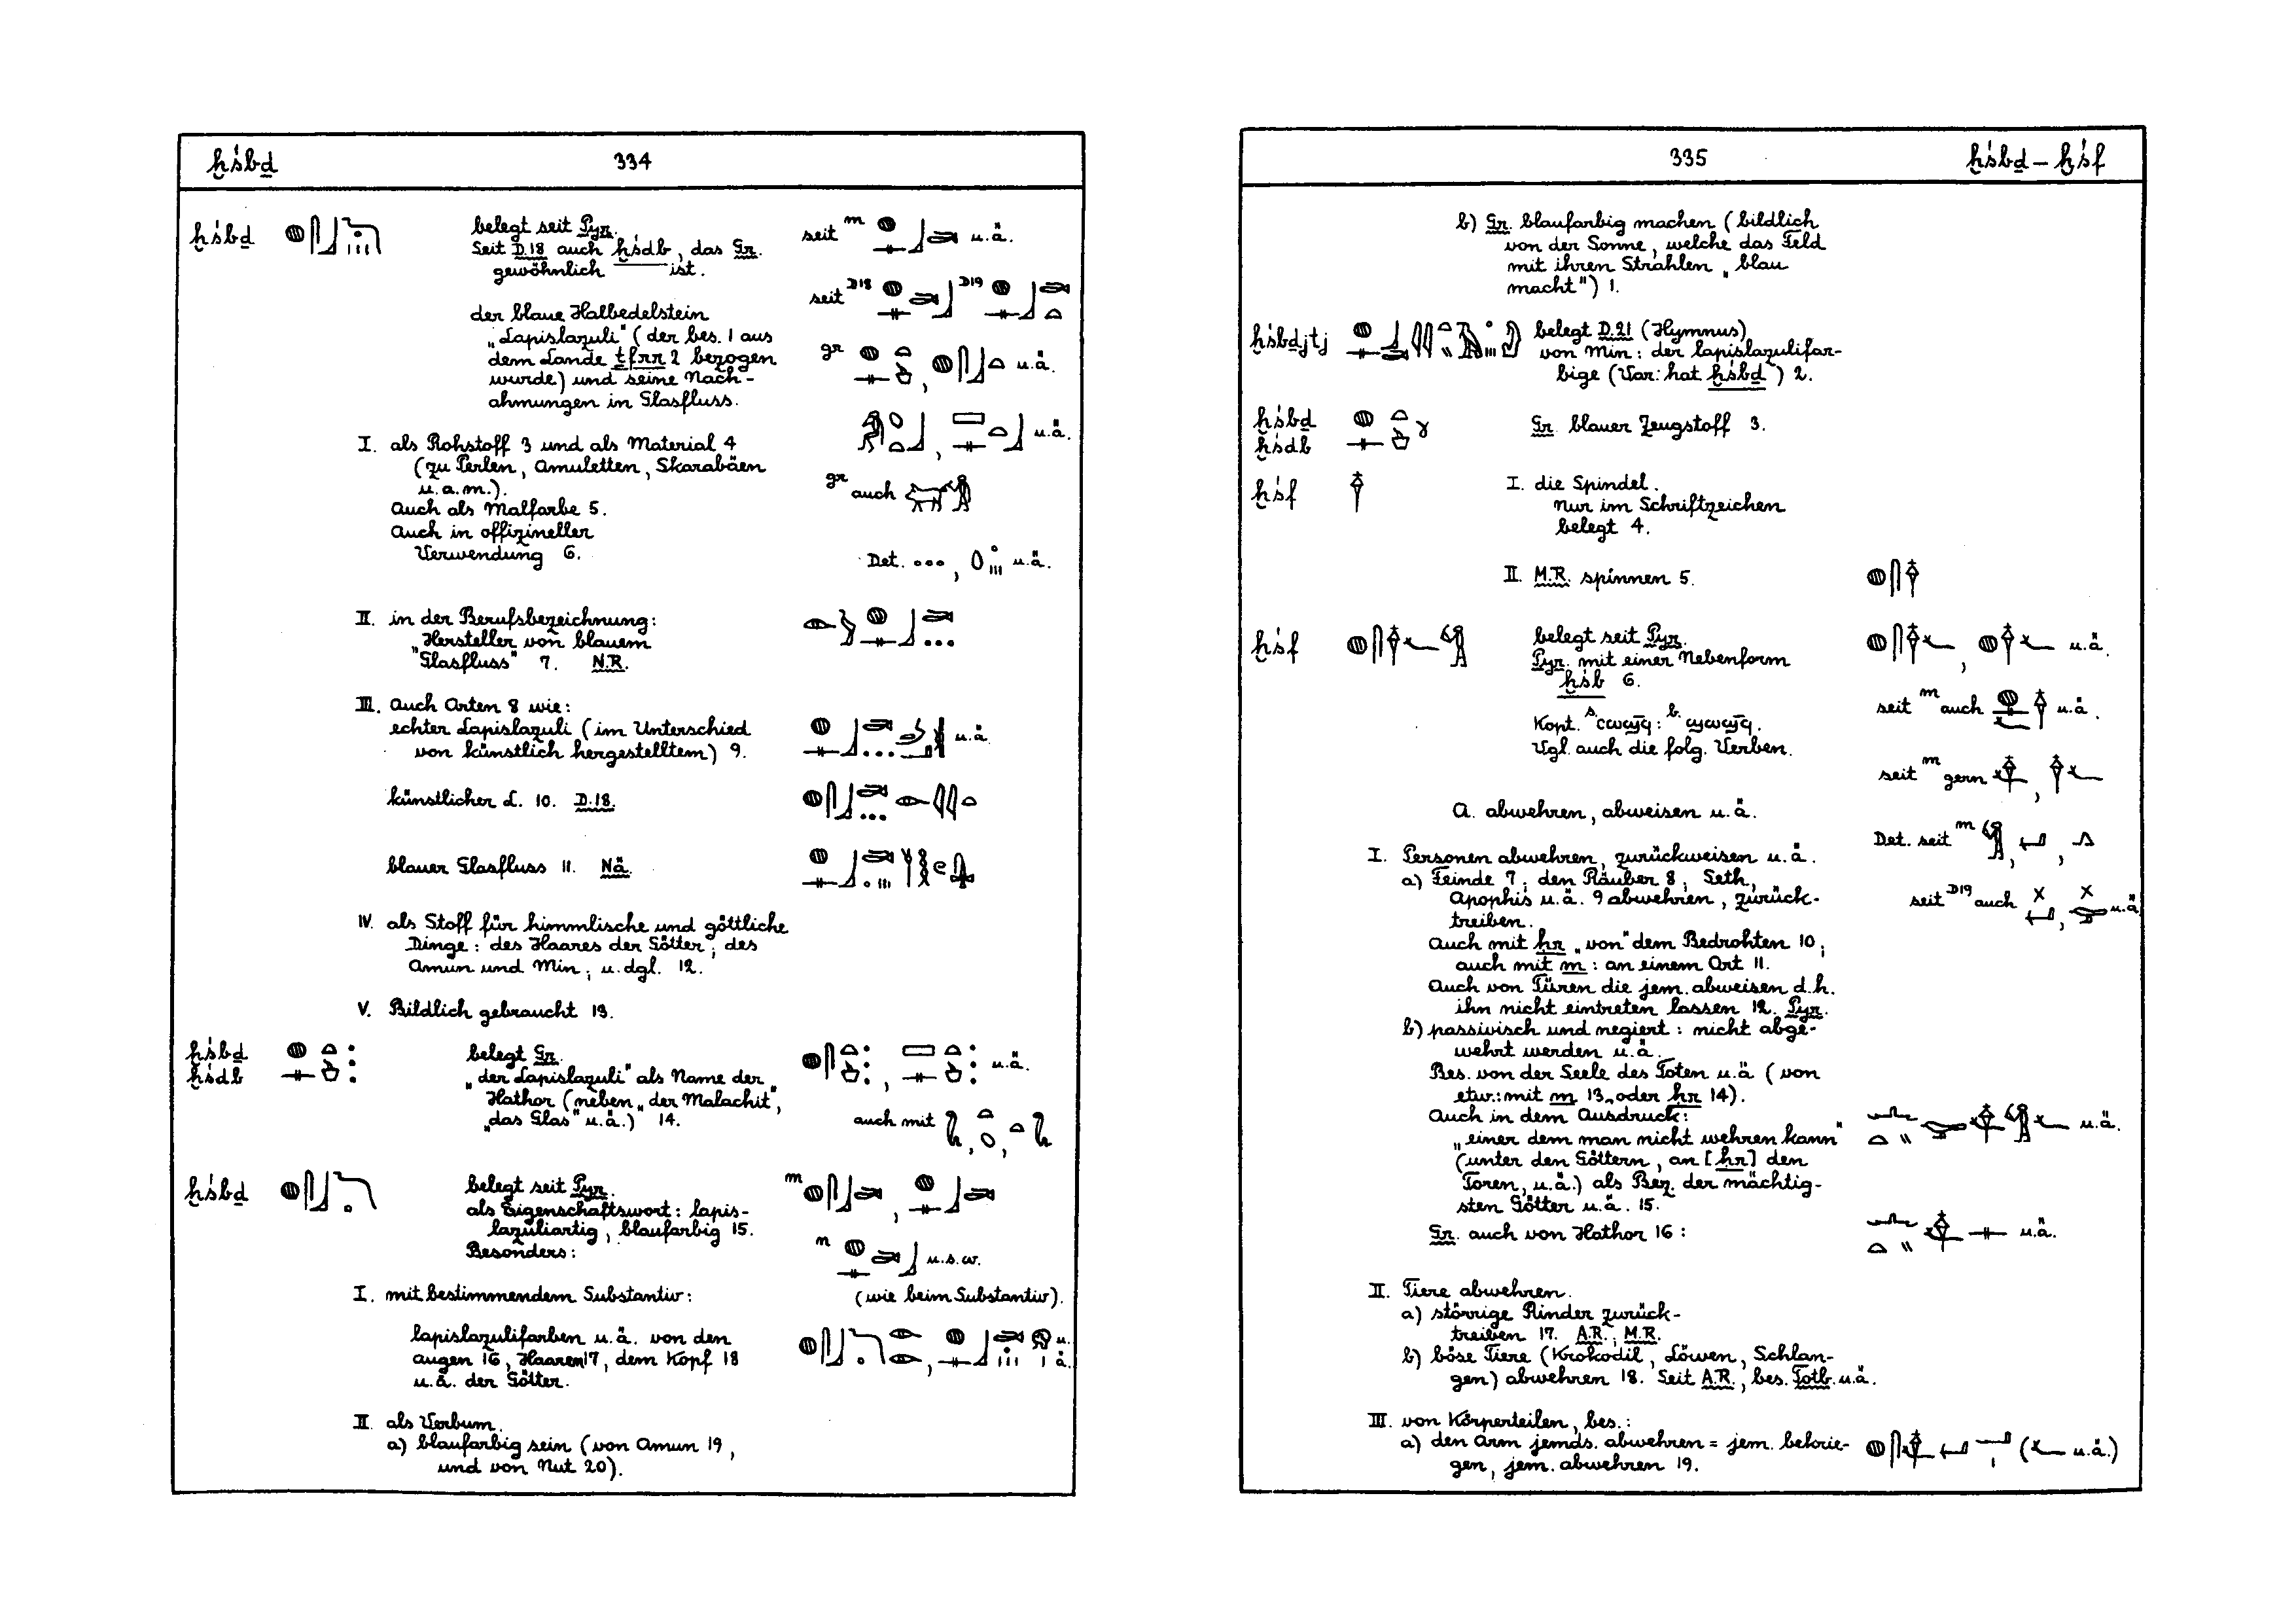 ḫśbd
334
ḫśbd
belegt seit Pyr.
Seit D.18 auch ḫśdb, das Gr.
gewöhnlich ist.
seit m u.ä.
seit D18 D19
der blaue Halbedelstein
„Lapislazuli“ (der bes. 1 aus
dem Lande tfrr 2 bezogen
wurde) und seine Nach-
ahmungen in Glasfluss.
gr , u.ä.
, u.ä.
I. als Rohstoff 3 und als Material 4
(zu Perlen, Amuletten, Skarabäen
u.a.m.).
Auch als Malfarbe 5.
Auch in offizineller
Verwendung 6.
gr auch
Det. , u.ä.
II. in der Berufsbezeichnung:
„Hersteller von blauem
Glasfluss“ 7. N.R.
III. Auch Arten 8 wie:
echter Lapislazuli (im Unterschied
von künstlich hergestelltem) 9.
u.ä.
künstlicher L. 10. D.18.
blauer Glasfluss 11. Nä.
IV. als Stoff für himmlische und göttliche
Dinge: des Haares der Götter; des
Amun und Min; u. dgl. 12.
V. Bildlich gebraucht 13.
ḫśbd
ḫśdb
belegt Gr.
„der Lapislazuli“ als Name der
Hathor (neben „der Malachit“,
„das Glas“ u.ä.) 14.
, u.ä.
auch mit , ,
ḫśbd
belegt seit Pyr.
als Eigenschaftswort: lapis-
lazuliartig, blaufarbig 15.
Besonders:
m ,
n u.s.w.
(wie beim Substantiv).
I. mit bestimmendem Substantiv:
lapislazulifarben u.ä. von den
Augen 16, Haaren 17, dem Kopf 18
u.ä. der Götter.
, u.ä.
II. als Verbum.
a) blaufarbig sein (von Amun 19,
und von Nut 20).
335
ḫśbd – ḫśf
b) Gr. blaufarbig machen (bildlich
von der Sonne, welche das Feld
mit ihren Strahlen „blau
macht“) 1.
ḫśbdjtj
belegt D.21 (Hymnus)
von Min: der lapislazulifar-
bige (Var: hat ḫśbd) 2.
ḫśbd
ḫśdb
Gr. blauer Zeugstoff 3.
ḫśf
I. die Spindel.
Nur im Schriftzeichen
belegt 4.
II. M.R. spinnen 5.
ḫśf
belegt seit Pyr.
Pyr. mit einer Nebenform
ḫśb 6.
Kopt. s. ⲥⲱϣϥ: b. ϣⲱϣϥ.
Vgl. auch die folg. Verben.
, u.ä.
seit m auch u.ä.
seit m gern ,
Det. seit m , ,
seit D19 auch , u.ä.
A. abwehren, abweisen u.ä.
I. Personen abwehren, zurückweisen u.ä.
a) Feinde 7; den Räuber 8; Seth,
Apophis u.ä. 9 abwehren, zurück-
treiben.
Auch mit ḥr „von“ dem Bedrohten 10;
auch mit m: an einem Ort 11.
Auch von Türen die jem. abweisen d.h.
ihn nicht eintreten lassen 12. Pyr.
b) passivisch und negiert: nicht abge-
wehrt werden u.ä.
Bes. von der Seele des Toten u.ä (von
etw.: mit m 13, oder ḥr 14).
Auch in dem Ausdruck:
„einer dem man nicht wehren kann“
(unter den Göttern, an [ḥr] den
Toren, u.ä.) als Bez. der mächtig-
sten Götter u.ä. 15.
u.ä.
Gr. auch von Hathor 16:
u.ä.
II. Tiere abwehren.
a) störrige Rinder zurück-
treiben 17. A.R.; M.R.
b) böse Tiere (Krokodil, Löwen, Schlan-
gen) abwehren 18. Seit A.R.; bes. Totb. u.ä.
III. von Körperteilen, bes.:
a) den Arm jemds. abwehren = jem. bekrie-
gen, jem. abwehren 19.
( u.ä.)